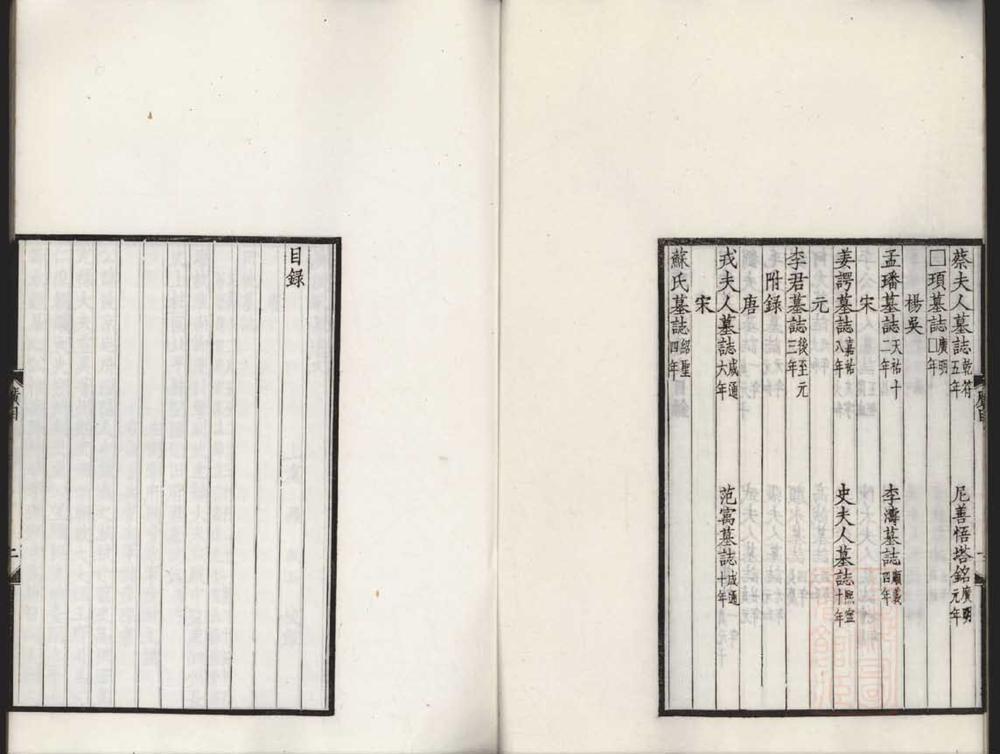 蔡夫人墓誌乾符五年 尼善悟塔銘廣明元年
□頊墓誌廣明□年
楊吳
孟璠墓誌天祐十二年 李濤墓誌順義四年
宋
姜諤墓誌嘉祐八年 史夫人墓誌熙寧十年
元
李君墓誌後至元三年
附錄
唐
戎夫人墓誌咸通六年 范寓墓誌咸通十年
宋
蘇氏墓誌紹聖四年
目錄
廣目
二